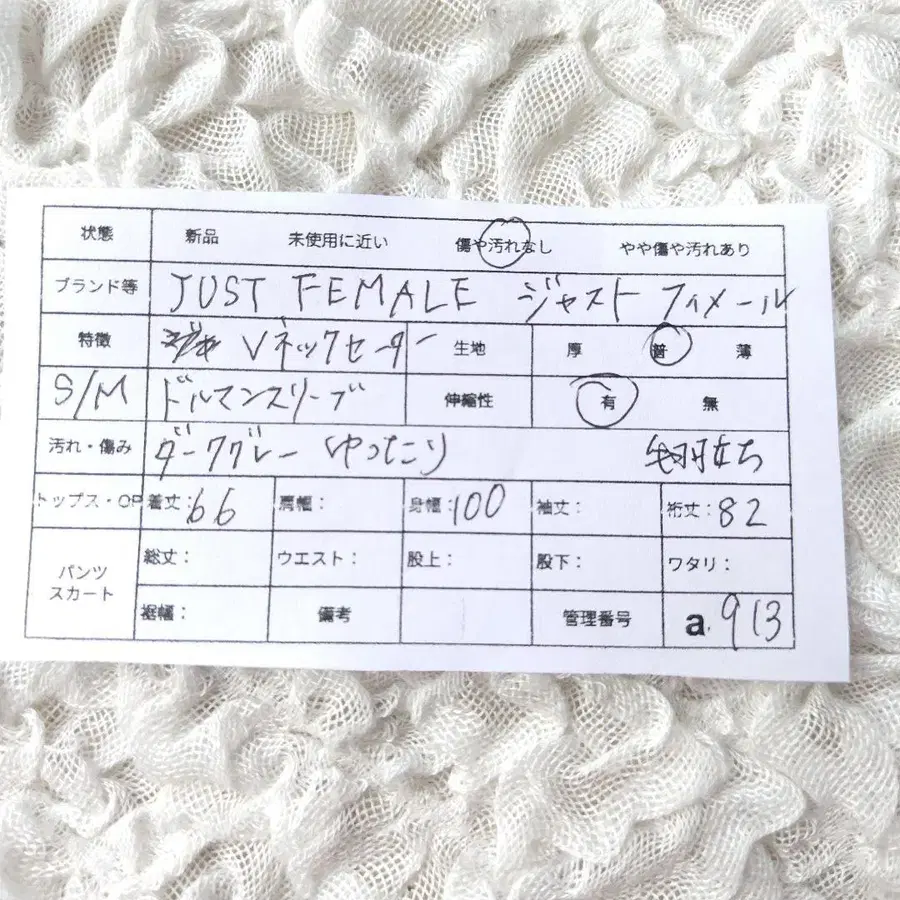 状態 新品 未使用に近い 傷や汚れなし やや傷や汚れあり
ブランド等 JUST FEMALE ジャスト フィメール
特徴 Vネックセーター 生地 厚 普 薄
S/M ドルマンスリーブ 伸縮性 有 無
汚れ・傷み ダークグレー ゆったり 毛羽立ち
トップス・OP 着丈:66 肩幅: 身幅:100 袖丈: 裄丈:82
パンツ スカート 総丈: ウエスト: 股上: 股下: ワタリ:
裾幅: 備考 管理番号 a.913